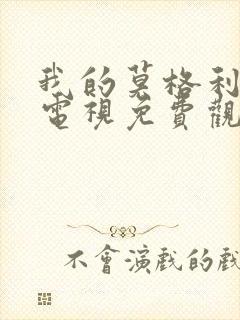 我的莫格利
電視免費觀
不會演戲的戲